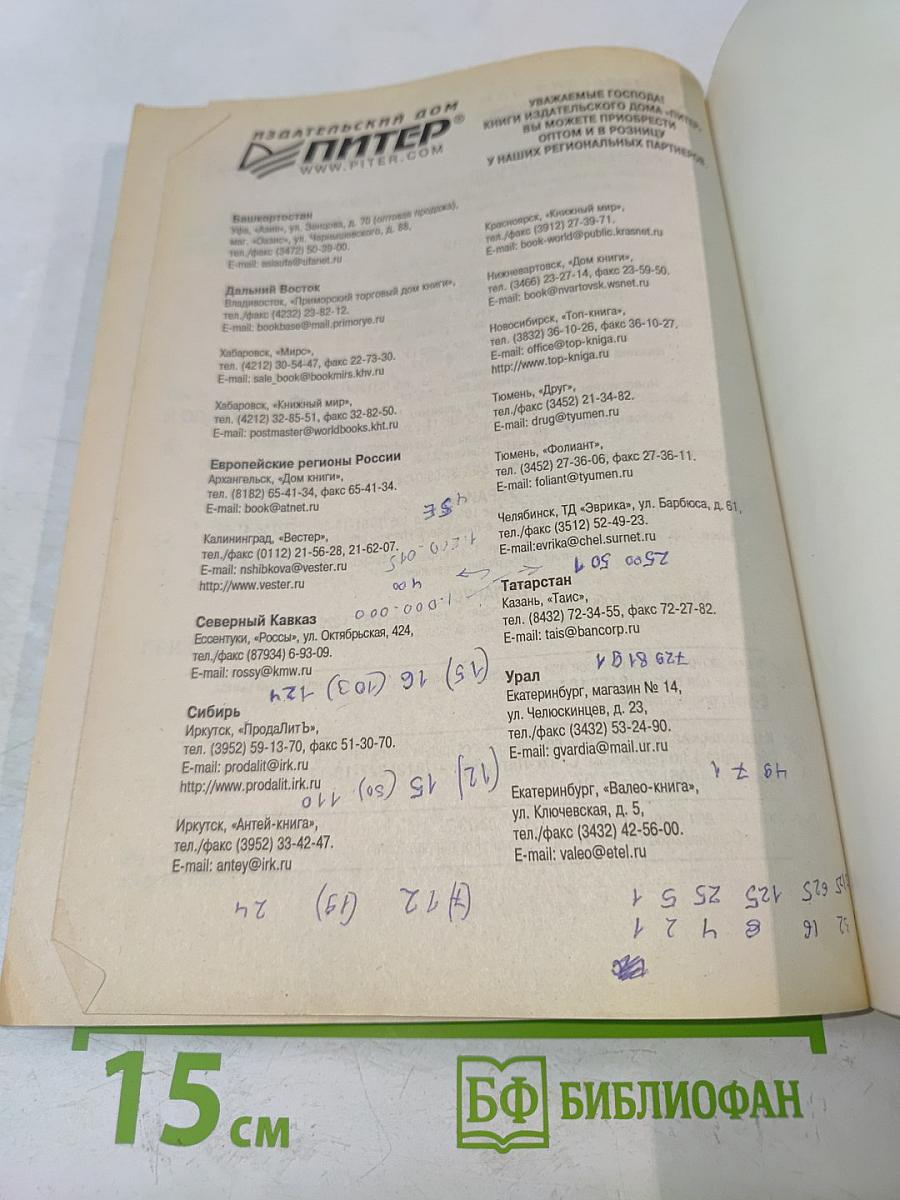 ИЗДАТЕЛЬСКИЙ ДОМ
ПИТЕР®
WWW.PITER.COM
УВАЖАЕМЫЕ ГОСПОДА!
КНИГИ ИЗДАТЕЛЬСКОГО ДОМА «ПИТЕР»
ВЫ МОЖЕТЕ ПРИОБРЕСТИ
ОПТОМ И В РОЗНИЦУ
У НАШИХ РЕГИОНАЛЬНЫХ ПАРТНЕРОВ.
Башкортостан
Уфа, «Азия», ул. Зенцова, д. 70 (оптовая продажа),
маг. «Оазис», ул. Чернышевского, д. 88,
тел./факс (3472) 50-39-00.
E-mail: asiaufa@ufanet.ru
Дальний Восток
Владивосток, «Приморский торговый дом книги»,
тел./факс (4232) 23-82-12.
E-mail: bookbase@mail.primorye.ru
Хабаровск, «Мирс»,
тел. (4212) 30-54-47, факс 22-73-30.
E-mail: sale_book@bookmirs.khv.ru
Хабаровск, «Книжный мир»,
тел. (4212) 32-85-51, факс 32-82-50.
E-mail: postmaster@worldbooks.kht.ru
Европейские регионы России
Архангельск, «Дом книги»,
тел. (8182) 65-41-34, факс 65-41-34.
E-mail: book@atnet.ru
Калининград, «Вестер»,
тел./факс (0112) 21-56-28, 21-62-07.
E-mail: nshibkova@vester.ru
http://www.vester.ru
400
1.000.000
Северный Кавказ
Ессентуки, «Россы», ул. Октябрьская, 424,
тел./факс (87934) 6-93-09.
E-mail: rossy@kmw.ru
(15) 16 (103) 124
Сибирь
Иркутск, «ПродаЛитЪ»,
тел. (3952) 59-13-70, факс 51-30-70.
E-mail: prodalit@irk.ru
http://www.prodalit.irk.ru
(12) 15 (50) 110
Иркутск, «Антей-книга»,
тел./факс (3952) 33-42-47.
E-mail: antey@irk.ru
(7) 12 (19) 24
Красноярск, «Книжный мир»,
тел./факс (3912) 27-39-71.
E-mail: book-world@public.krasnet.ru
Нижневартовск, «Дом книги»,
тел. (3466) 23-27-14, факс 23-59-50.
E-mail: book@nvartovsk.wsnet.ru
Новосибирск, «Топ-книга»,
тел. (3832) 36-10-26, факс 36-10-27.
E-mail: office@top-kniga.ru
http://www.top-kniga.ru
Тюмень, «Друг»,
тел./факс (3452) 21-34-82.
E-mail: drug@tyumen.ru
Тюмень, «Фолиант»,
тел. (3452) 27-36-06, факс 27-36-11.
E-mail: foliant@tyumen.ru
Челябинск, ТД «Эврика», ул. Барбюса, д. 61,
тел./факс (3512) 52-49-23.
E-mail:evrika@chel.surnet.ru
2500 50 1
Татарстан
Казань, «Таис»,
тел. (8432) 72-34-55, факс 72-27-82.
E-mail: tais@bancorp.ru
729 81 9 1
Урал
Екатеринбург, магазин № 14,
ул. Челюскинцев, д. 23,
тел./факс (3432) 53-24-90.
E-mail: gvardia@mail.ur.ru
49 7 1
Екатеринбург, «Валео-книга»,
ул. Ключевская, д. 5,
тел./факс (3432) 42-56-00.
E-mail: valeo@etel.ru
625 125 25 5 1
32 16 8 4 2 1
15 см
БФ БИБЛИОФАН